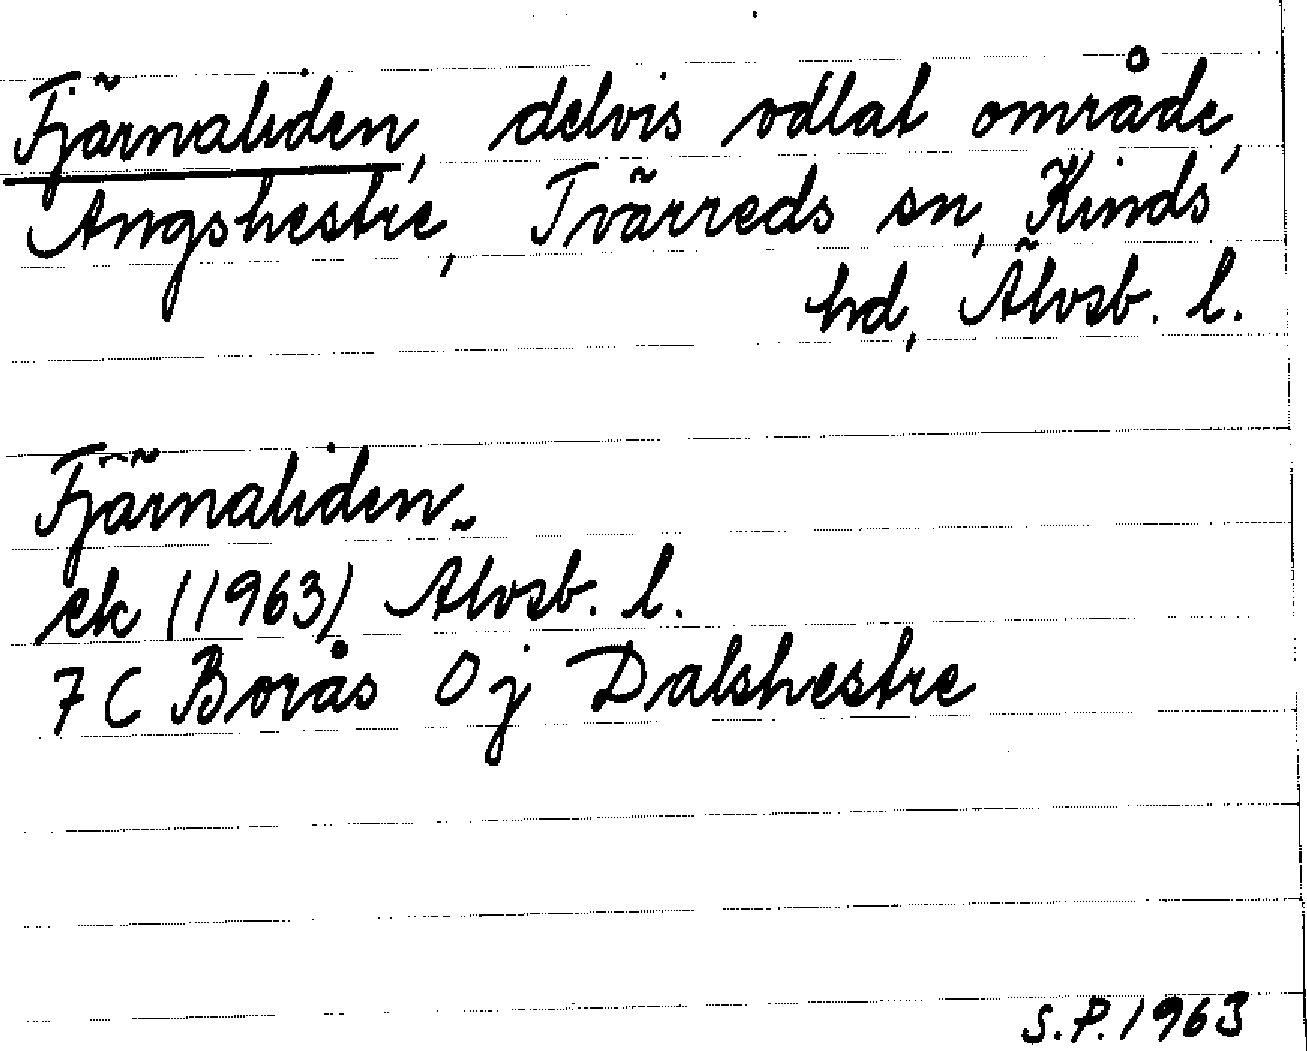 Fjärnaliden, delvis odlat område,
Ängshestre, Tvärreds sn, Kinds
hd, Älvsb. l.
Fjärnaliden.
ek (1963) Älvsb. l.
7 C Borås 0 j Dalshestre
S.P. 1963